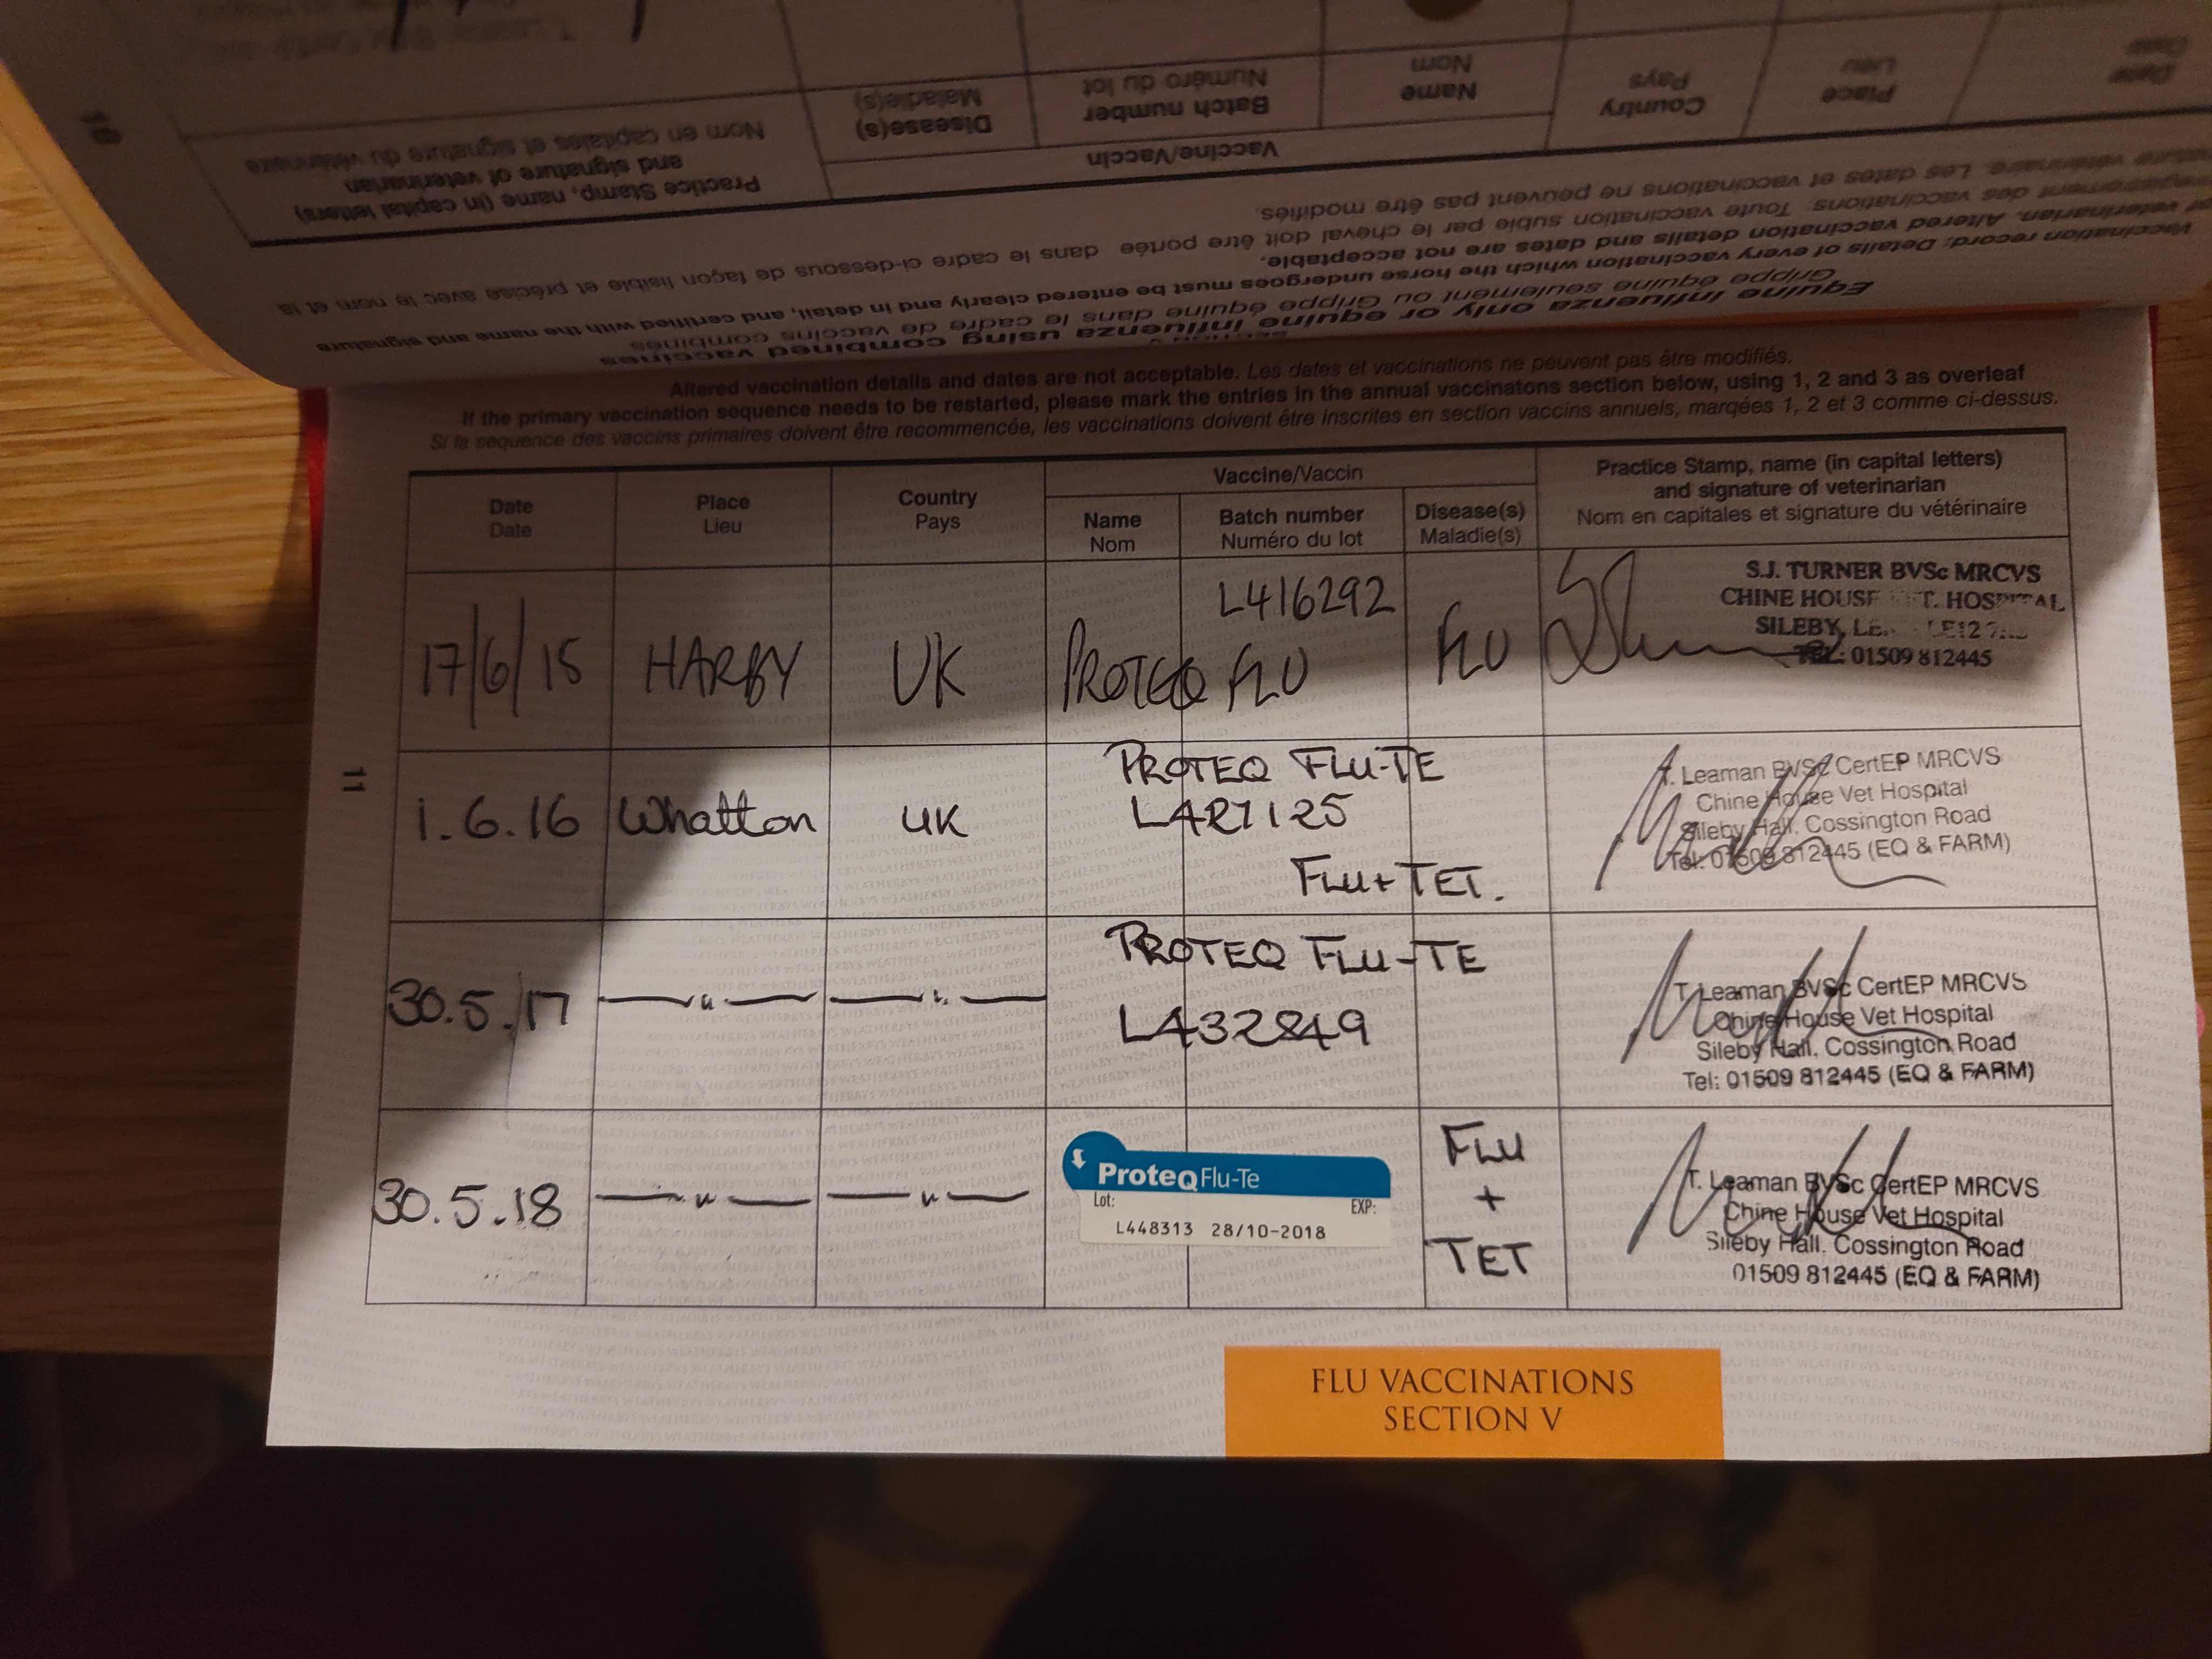 Equine influenza only or equine influenza using combined vaccines
Grippe équine seulement ou Grippe équine dans le cadre de vaccins combinés
Vaccination record: Details of every vaccination which the horse undergoes must be entered clearly and in detail, and certified with the name and signature
of veterinarian. Altered vaccination details and dates are not acceptable.
des vaccinations: Toute vaccination subie par le cheval doit être portée dans le cadre ci-dessous de façon lisible et précise avec le nom et la
vétérinaire. Les dates et vaccinations ne peuvent pas être modifiés.
Date
Date
Place
Lieu
Country
Pays
Vaccine/Vaccin
Name
Nom
Batch number
Numéro du lot
Disease(s)
Maladie(s)
Practice Stamp, name (in capital letters)
and signature of veterinarian
Nom en capitales et signature du vétérinaire
10
Altered vaccination details and dates are not acceptable. Les dates et vaccinations ne peuvent pas être modifiés.
If the primary vaccination sequence needs to be restarted, please mark the entries in the annual vaccinatons section below, using 1, 2 and 3 as overleaf
Si la sequence des vaccins primaires doivent être recommencée, les vaccinations doivent être inscrites en section vaccins annuels, marqées 1, 2 et 3 comme ci-dessus.
Date
Date
Place
Lieu
Country
Pays
Vaccine/Vaccin
Name
Nom
Batch number
Numéro du lot
Disease(s)
Maladie(s)
Practice Stamp, name (in capital letters)
and signature of veterinarian
Nom en capitales et signature du vétérinaire
17/6/15
HARBY
UK
L416292
PROTEQ FLU
FLU
S.J. TURNER BVSc MRCVS
CHINE HOUSE VET. HOSPITAL
SILEBY, LE12
TEL: 01509 812445
11
1.6.16
Whatton
UK
PROTEQ FLU-TE
LAR7125
FLU+TET.
T. Leaman BVSc CertEP MRCVS
Chine House Vet Hospital
Sileby Hall. Cossington Road
Tel: 01509 812445 (EQ & FARM)
30.5.17
— " —
— " —
PROTEQ FLU-TE
LA32849
T. Leaman BVSc CertEP MRCVS
Chine House Vet Hospital
Sileby Hall. Cossington Road
Tel: 01509 812445 (EQ & FARM)
30.5.18
— " —
— " —
ProteqFlu-Te
Lot:
EXP:
L448313 28/10-2018
FLU
+
TET
T. Leaman BVSc CertEP MRCVS
Chine House Vet Hospital
Sileby Hall. Cossington Road
01509 812445 (EQ & FARM)
FLU VACCINATIONS
SECTION V